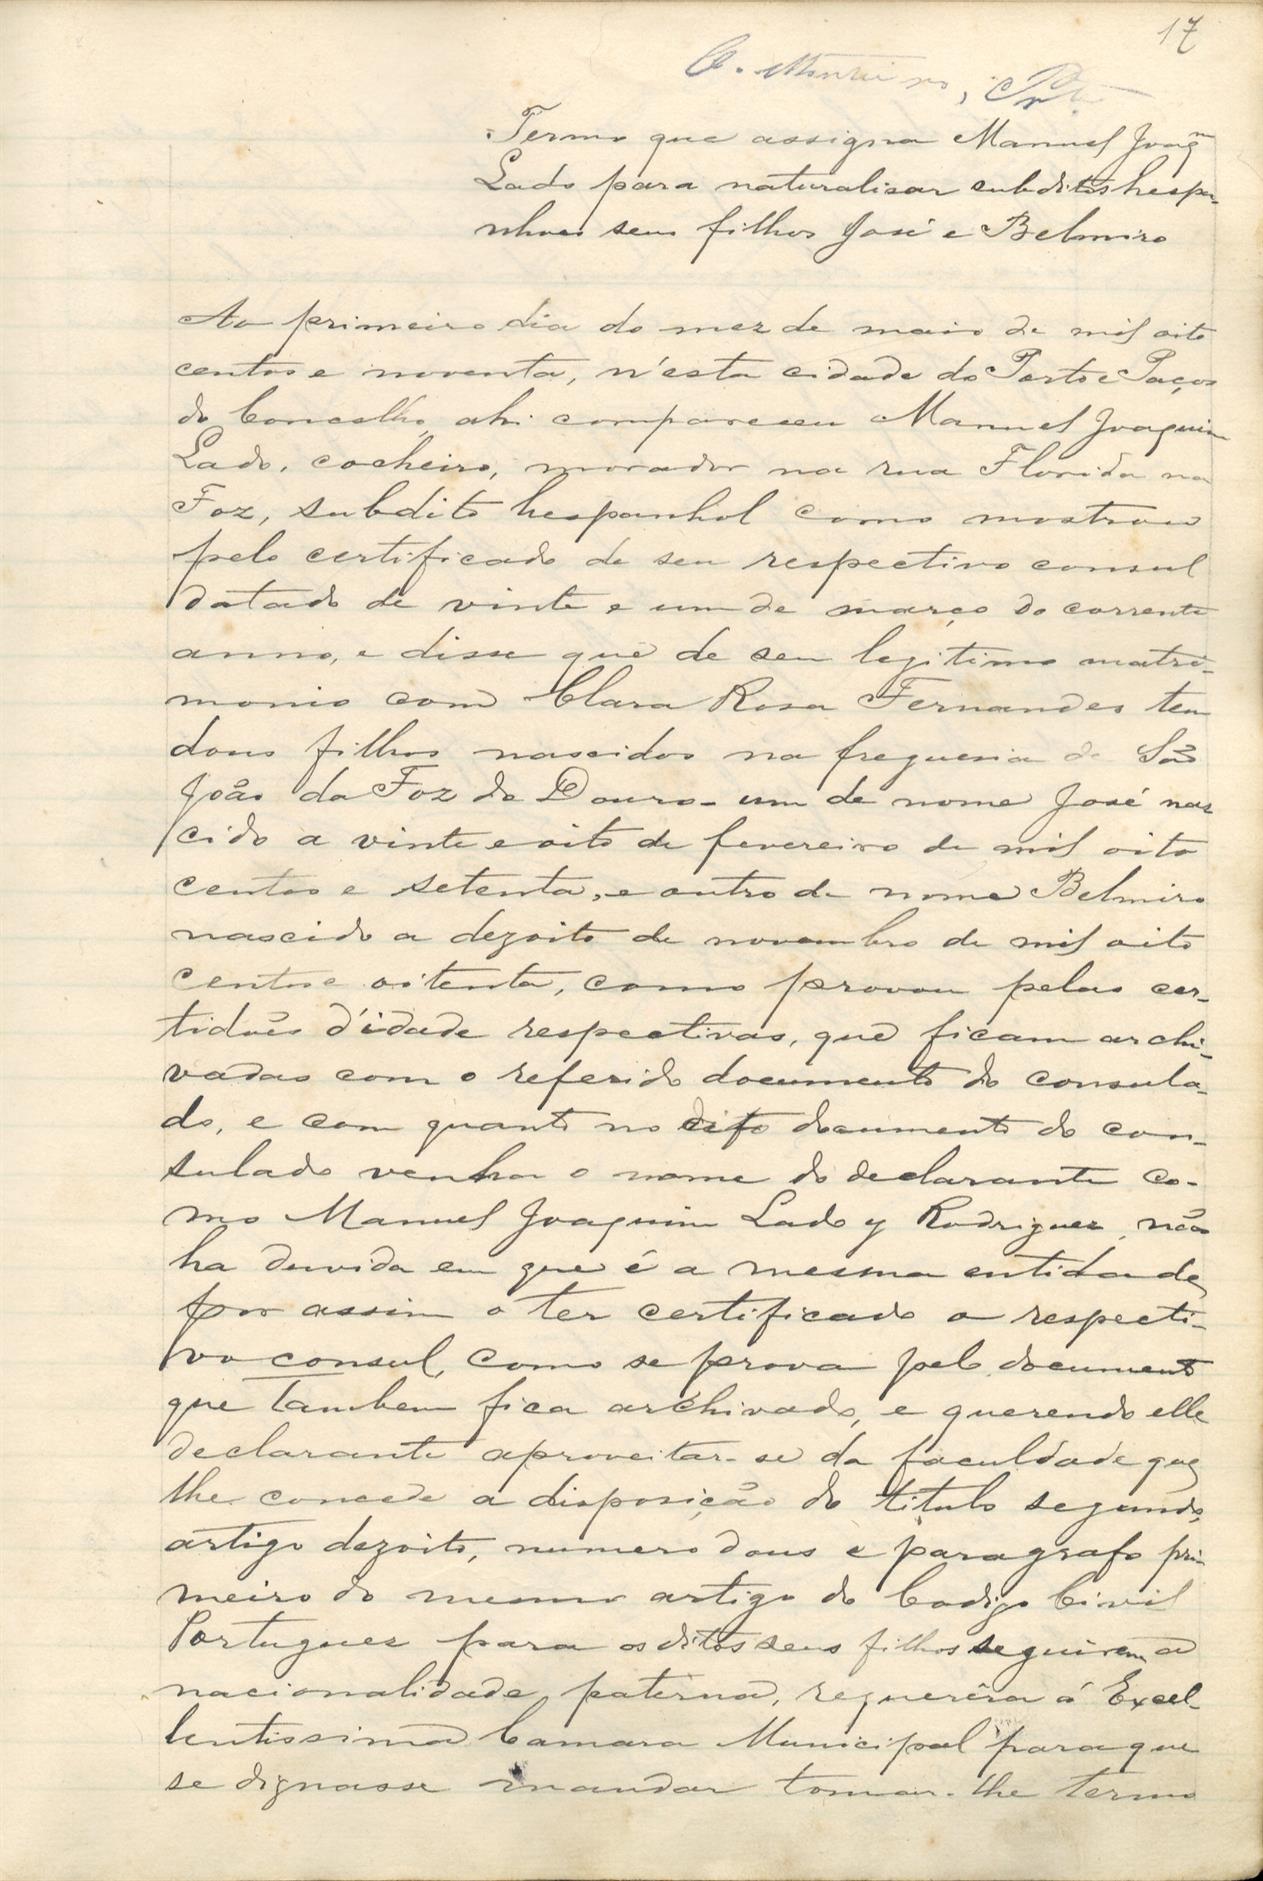 17
Termo que assigna Manuel Joaqm
Lado para naturalisar subditos hespa-
nhoes seus filhos José e Belmiro
Ao primeiro dia do mez de maio de mil oito
centos e noventa, n'esta cidade do Porto e Paços
do Concelho, ahi compareceu Manuel Joaquim
Lado, cocheiro, morador na rua Florida na
Foz, subdito hespanhol como mostrou
pelo certificado de seu respectivo consul
datado de vinte e um de março do corrente
anno, e disse que de seu legitimo matri-
monio com Clara Rosa Fernandes tem
dous filhos nascidos na freguesia de São
João da Foz do Douro - um de nome José nas
cido a vinte e oito de fevereiro de mil oito
centos e setenta, e outro de nome Belmiro
nascido a dezoito de novembro de mil oito
centos e oitenta, como provou pelas cer-
tidoẽs d'idade respectivas, que ficam archi-
vadas com o referido documento do consula-
do, e com quanto no dito documento do con-
sulado venha o nome do declarante co-
mo Manuel Joaquim Lado y Rodriguez, não
ha duvida em que é a mesma entidade
por assim o ter certificado o respecti-
vo consul, como se prova pelo documento
que tambem fica archivado, e querendo elle
declarante aproveitar-se da faculdade que
lhe concede a disposição do titulo segundo,
artigo dezoito, numero dous e paragrafo pri-
meiro do mesmo artigo do Codigo Civil
Portuguez para os ditos seus filhos seguirem a
nacionalidade paterna, requerêra á Excel-
lentissima Camara Municipal para que
se dignasse mandar tomar-lhe termo